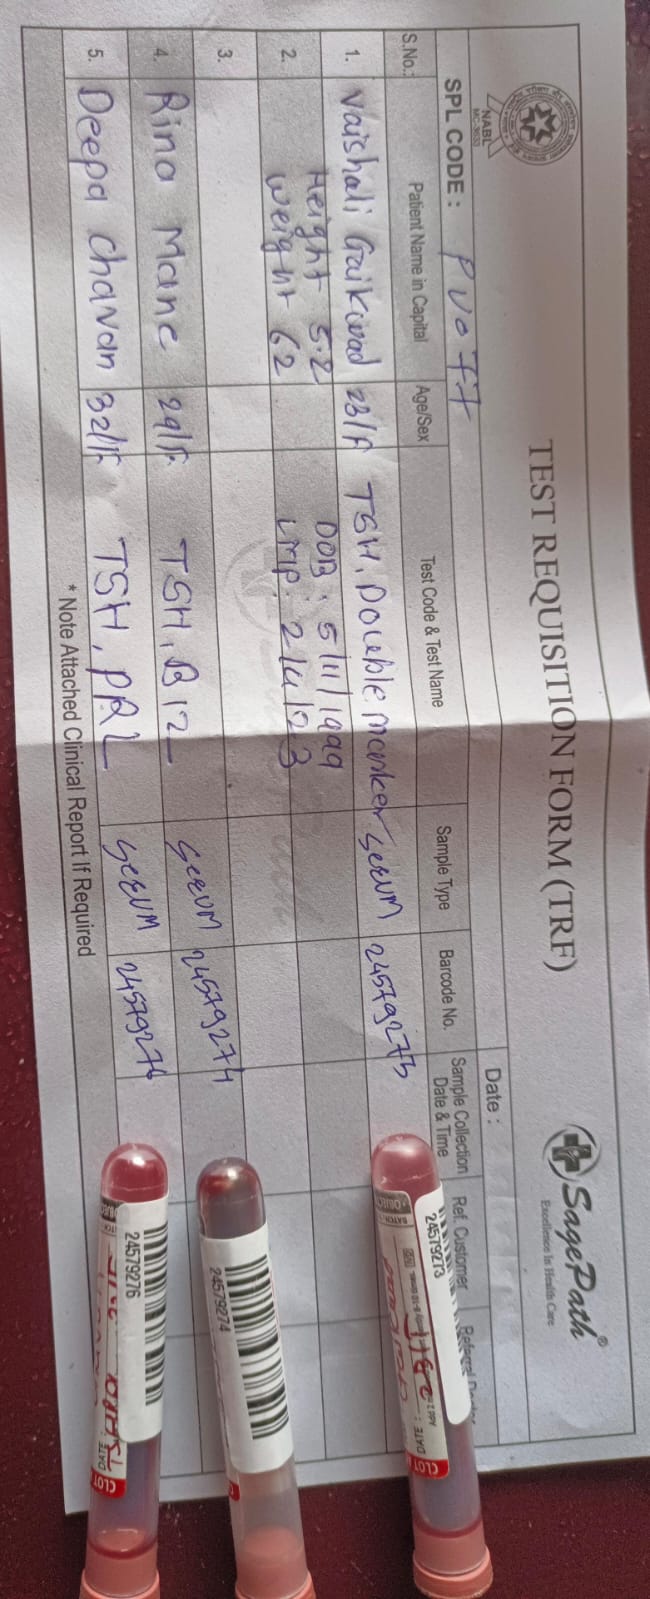 NABL
TEST REQUISITION FORM (TRF)
SagePath®
Excellence In Health Care
SPL CODE :
Date :
S.No.: Patient Name in Capital Age/Sex Test Code & Test Name Sample Type Barcode No. Sample Collection Date & Time Ref. Customer Referral
1. Vaishali Gaikwad 23/F TSH, Double marker Serum 24579273
Height 5.2 DOB : 5/11/1999
2. Weight 62 LMP : 2/4/23
3.
4. Rina Mane 29/F TSH, B12 Serum 24579274
5. Deepa Chavan 32/F TSH, PRL Serum 24579276
* Note Attached Clinical Report If Required
24579273
DATE :
CLOT
24579274
24579276
DATE :
CLOT